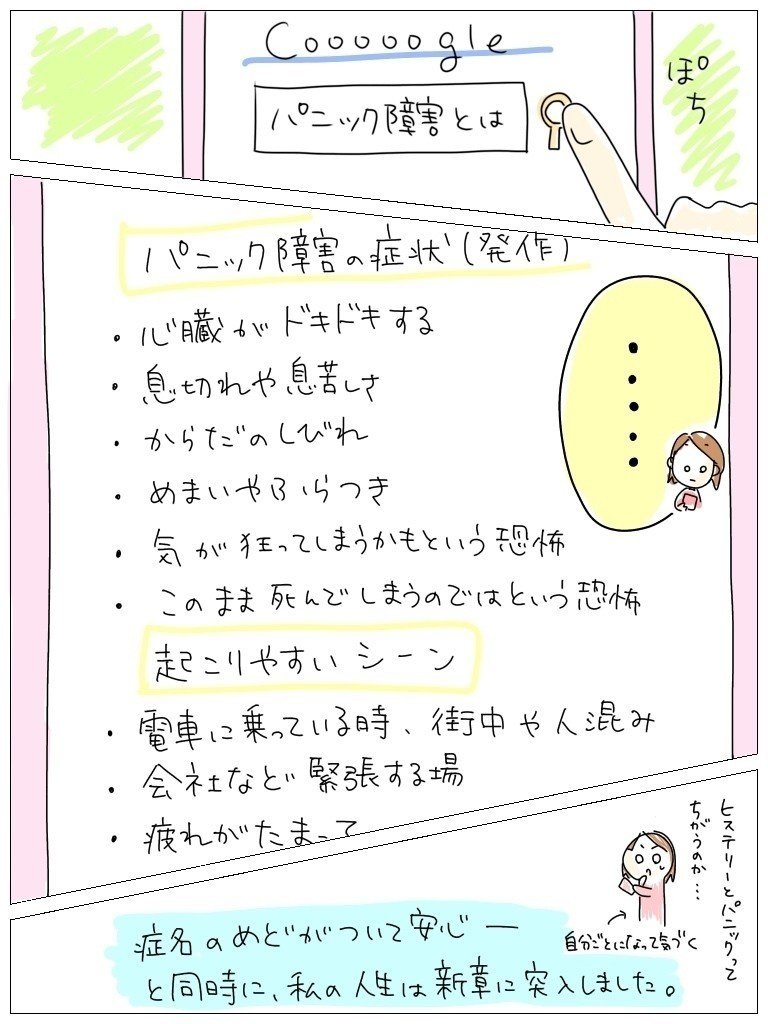 Cooooogle
パニック障害とは
ぽち
パニック障害の症状(発作)
・心臓がドキドキする
・息切れや息苦しさ
・からだのしびれ
・めまいやふらつき
・気が狂ってしまうかもという恐怖
・このまま死んでしまうのではという恐怖
起こりやすいシーン
・電車に乗っている時、街中や人混み
・会社など緊張する場
・疲れがたまって
ヒステリーとパニックって
ちがうのか…
自分ごとになって気づく
症名のめどがついて安心ー
と同時に、私の人生は新章に突入しました。